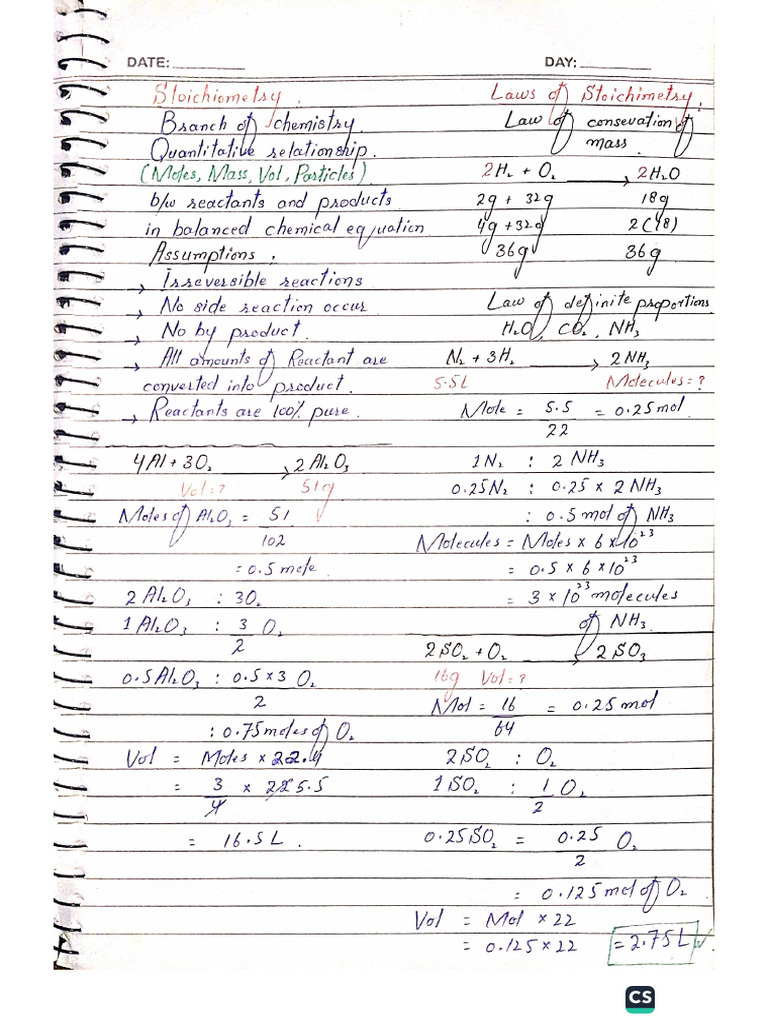 DATE: ________
DAY: ________
Stoichiometry.
Branch of chemistry
Quantitative relationship.
(Moles, Mass, Vol, Particles)
b/w reactants and products
in balanced chemical equation
Assumptions,
→ Irreversible reactions
→ No side reaction occur
→ No by product
→ All amounts of Reactant are
converted into product.
→ Reactants are 100% pure.
4Al + 3O₂ → 2Al₂O₃
Vol = ? 51g
Moles of Al₂O₃ = 51
102
= 0.5 mole
2Al₂O₃ : 3O₂
1Al₂O₃ : 3 O₂
2
0.5Al₂O₃ : 0.5 × 3 O₂
2
: 0.75 moles of O₂
Vol = Moles × 22.4
= 3 × 22 5.5
4
= 16.5 L.
Laws of Stoichimetry.
Law of consevation of
mass.
2H₂ + O₂ → 2H₂O
2g + 32g 18g
4g + 32g 2(18)
36g 36g.
Law of definite proportions
H₂O, CO₂, NH₃
N₂ + 3H₂ → 2NH₃
5.5L Molecules = ?
Mole = 5.5 = 0.25 mol
22
1N₂ : 2 NH₃
0.25N₂ : 0.25 × 2 NH₃
: 0.5 mol of NH₃
Molecules = Moles × 6 × 10²³
= 0.5 × 6 × 10²³
= 3 × 10²³ molecules
of NH₃.
2SO₂ + O₂ → 2SO₃
16g Vol = ?
Mol = 16 = 0.25 mol
64
2SO₂ : O₂
1SO₂ : 1 O₂
2
0.25SO₂ = 0.25 O₂
2
= 0.125 mol of O₂
Vol = Mol × 22
= 0.125 × 22 = 2.75 L
CS